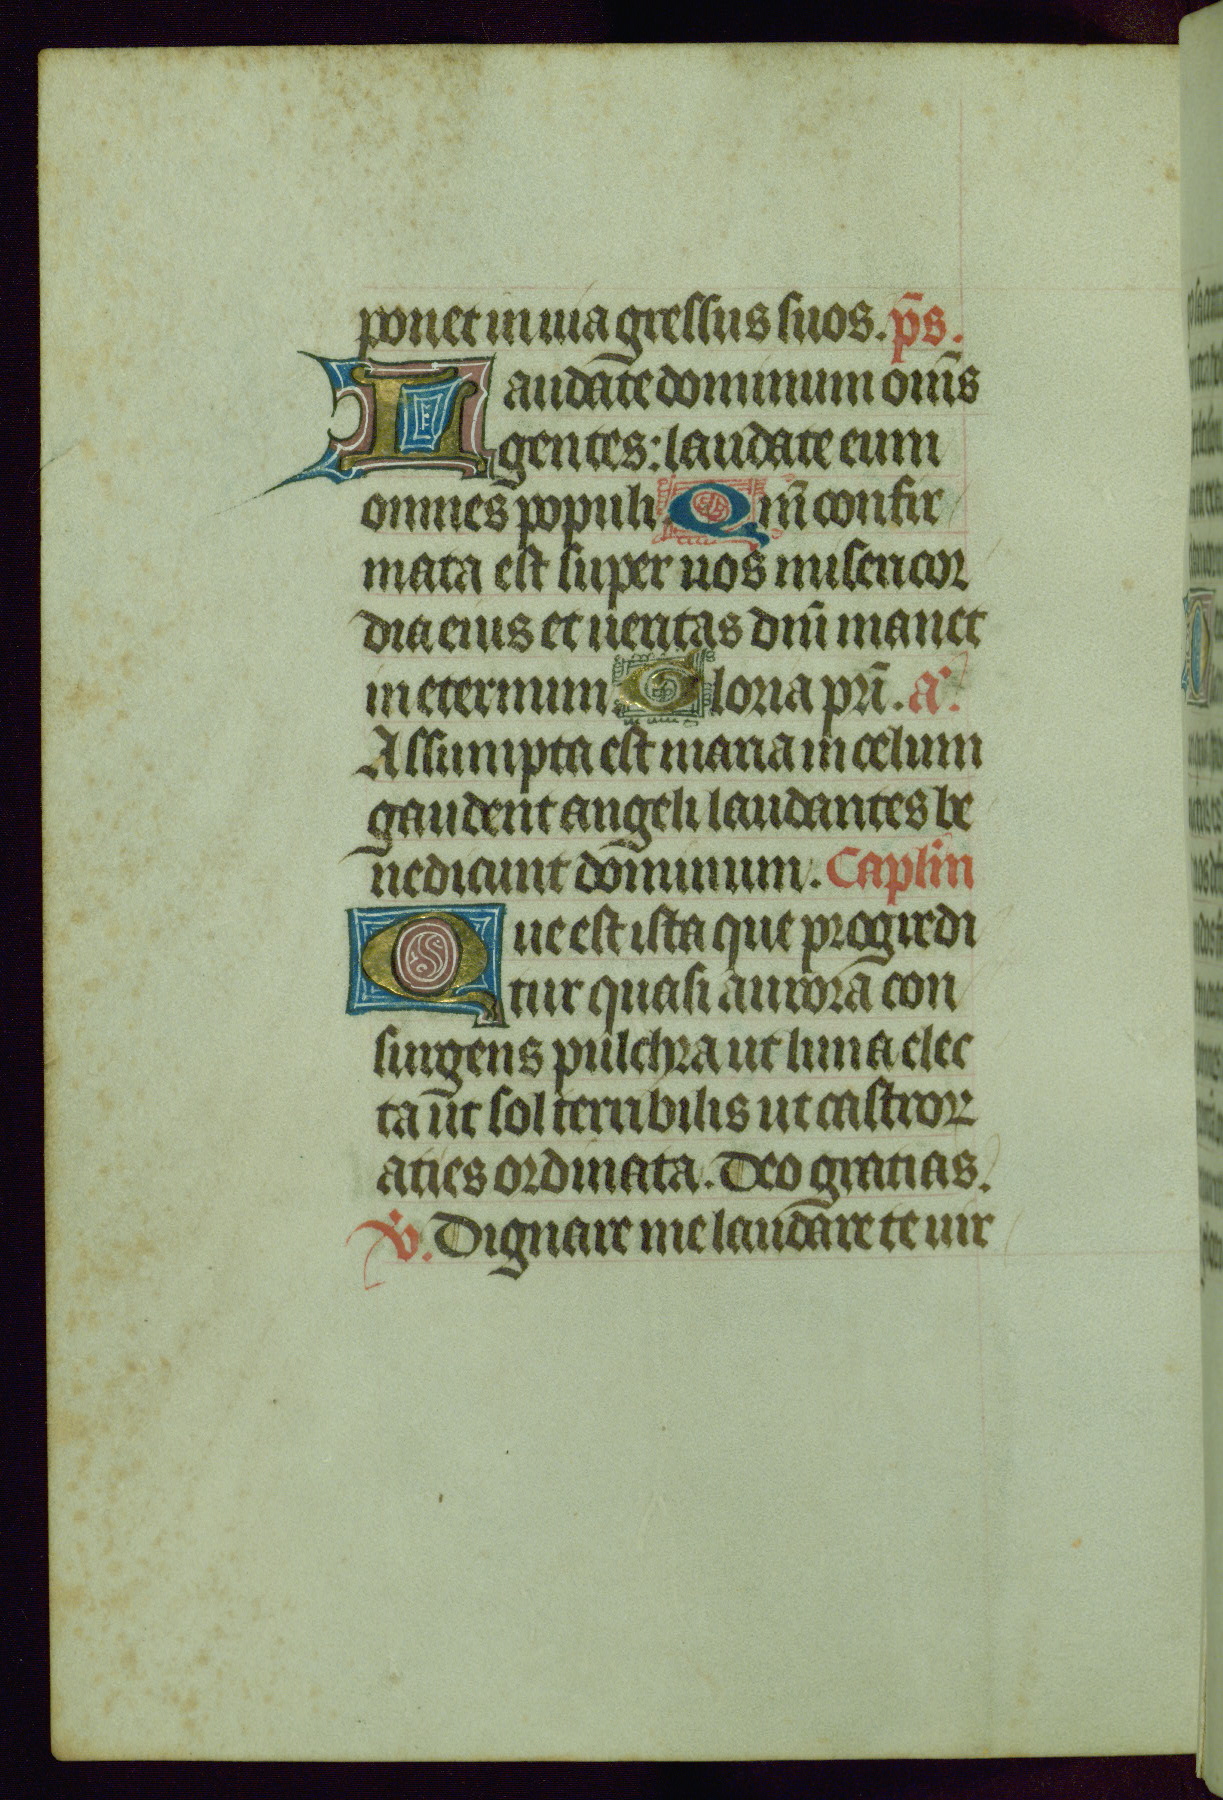 ponet in uia gressus suos. ps̄.
Laudate dominum om̄s
gentes: laudate eum
omnes populi. Qm̄ confir
mata est super nos misericor
dia eius et ueritas dn̄i manet
in eternum. Gloria pr̄i. a.
Assumpta est maria in celum
gaudent angeli laudantes be
nedicunt dominum. Caplm̄
Que est ista que progredi
tur quasi aurora con
surgens pulchra ut luna elec
ta ut sol terribilis ut castror
aties ordinata. Deo gratias.
V. Dignare me laudare te uir